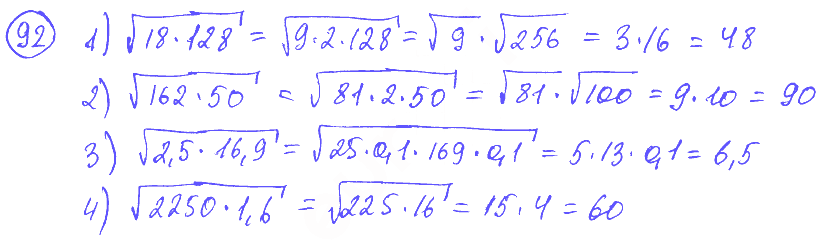 92 1) √18·128 = √9·2·128 = √9 · √256 = 3·16 = 48
2) √162·50 = √81·2·50 = √81·√100 = 9·10 = 90
3) √2,5·16,9 = √25·0,1·169·0,1 = 5·13·0,1 = 6,5
4) √2250·1,6 = √225·16 = 15·4 = 60